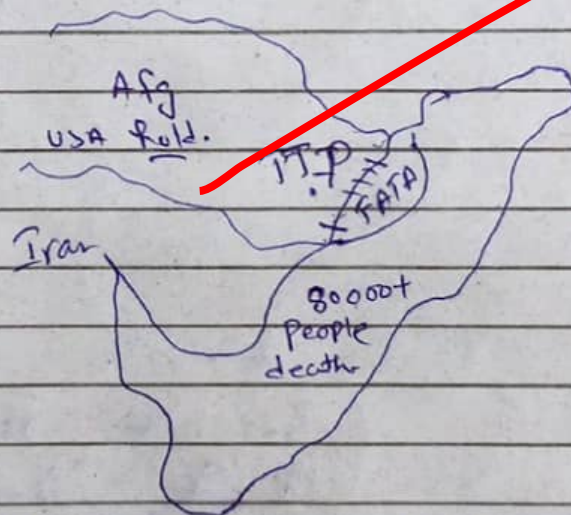 Afg
USA hold.
TTP
FATA
Iran
80000+
people
death